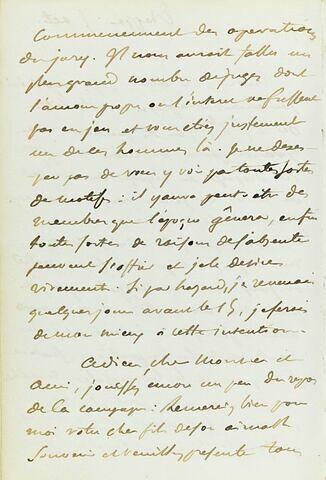 Commencement des opérations
du jury. Il nous aurait fallu un
plus grand nombre de juges dont
l'amour propre ou l'intérêt ne fussent
pas en jeu et vous étiez justement
un de ces hommes là. Je ne déses-
père pas de vous y voir par toutes sortes
de motifs : il y aura peut-être des
membres que l'époque gênera, enfin
toute sortes de raisons de s'absenter
peuvent s'offrir et je le désire
vivement. Si par hasard, je revenais
quelques jours avant le 15, je ferais
de mon mieux à cette intention.
Adieu, cher Monsieur et
ami, jouissez encore un peu du repos
de la campagne : Remerciez bien pour
moi votre cher fils de son aimable
souvenir et veuillez présenter tous